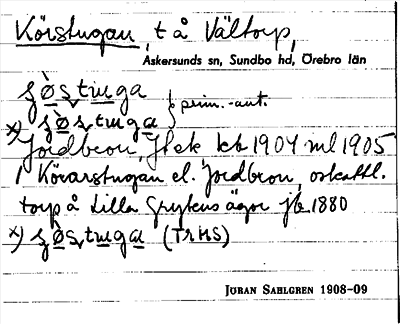 Körstugan t å Vältorp,
Askersunds sn, Sundbo hd, Örebro län
prim.-ant.
Jordbron, Jfsk kb 1904 ml 1905
Körarstugan el. Jordbron, oskattl.
torp å Lilla Grytens ägor jb 1880
(TRHS)
JÖRAN SAHLGREN 1908-09